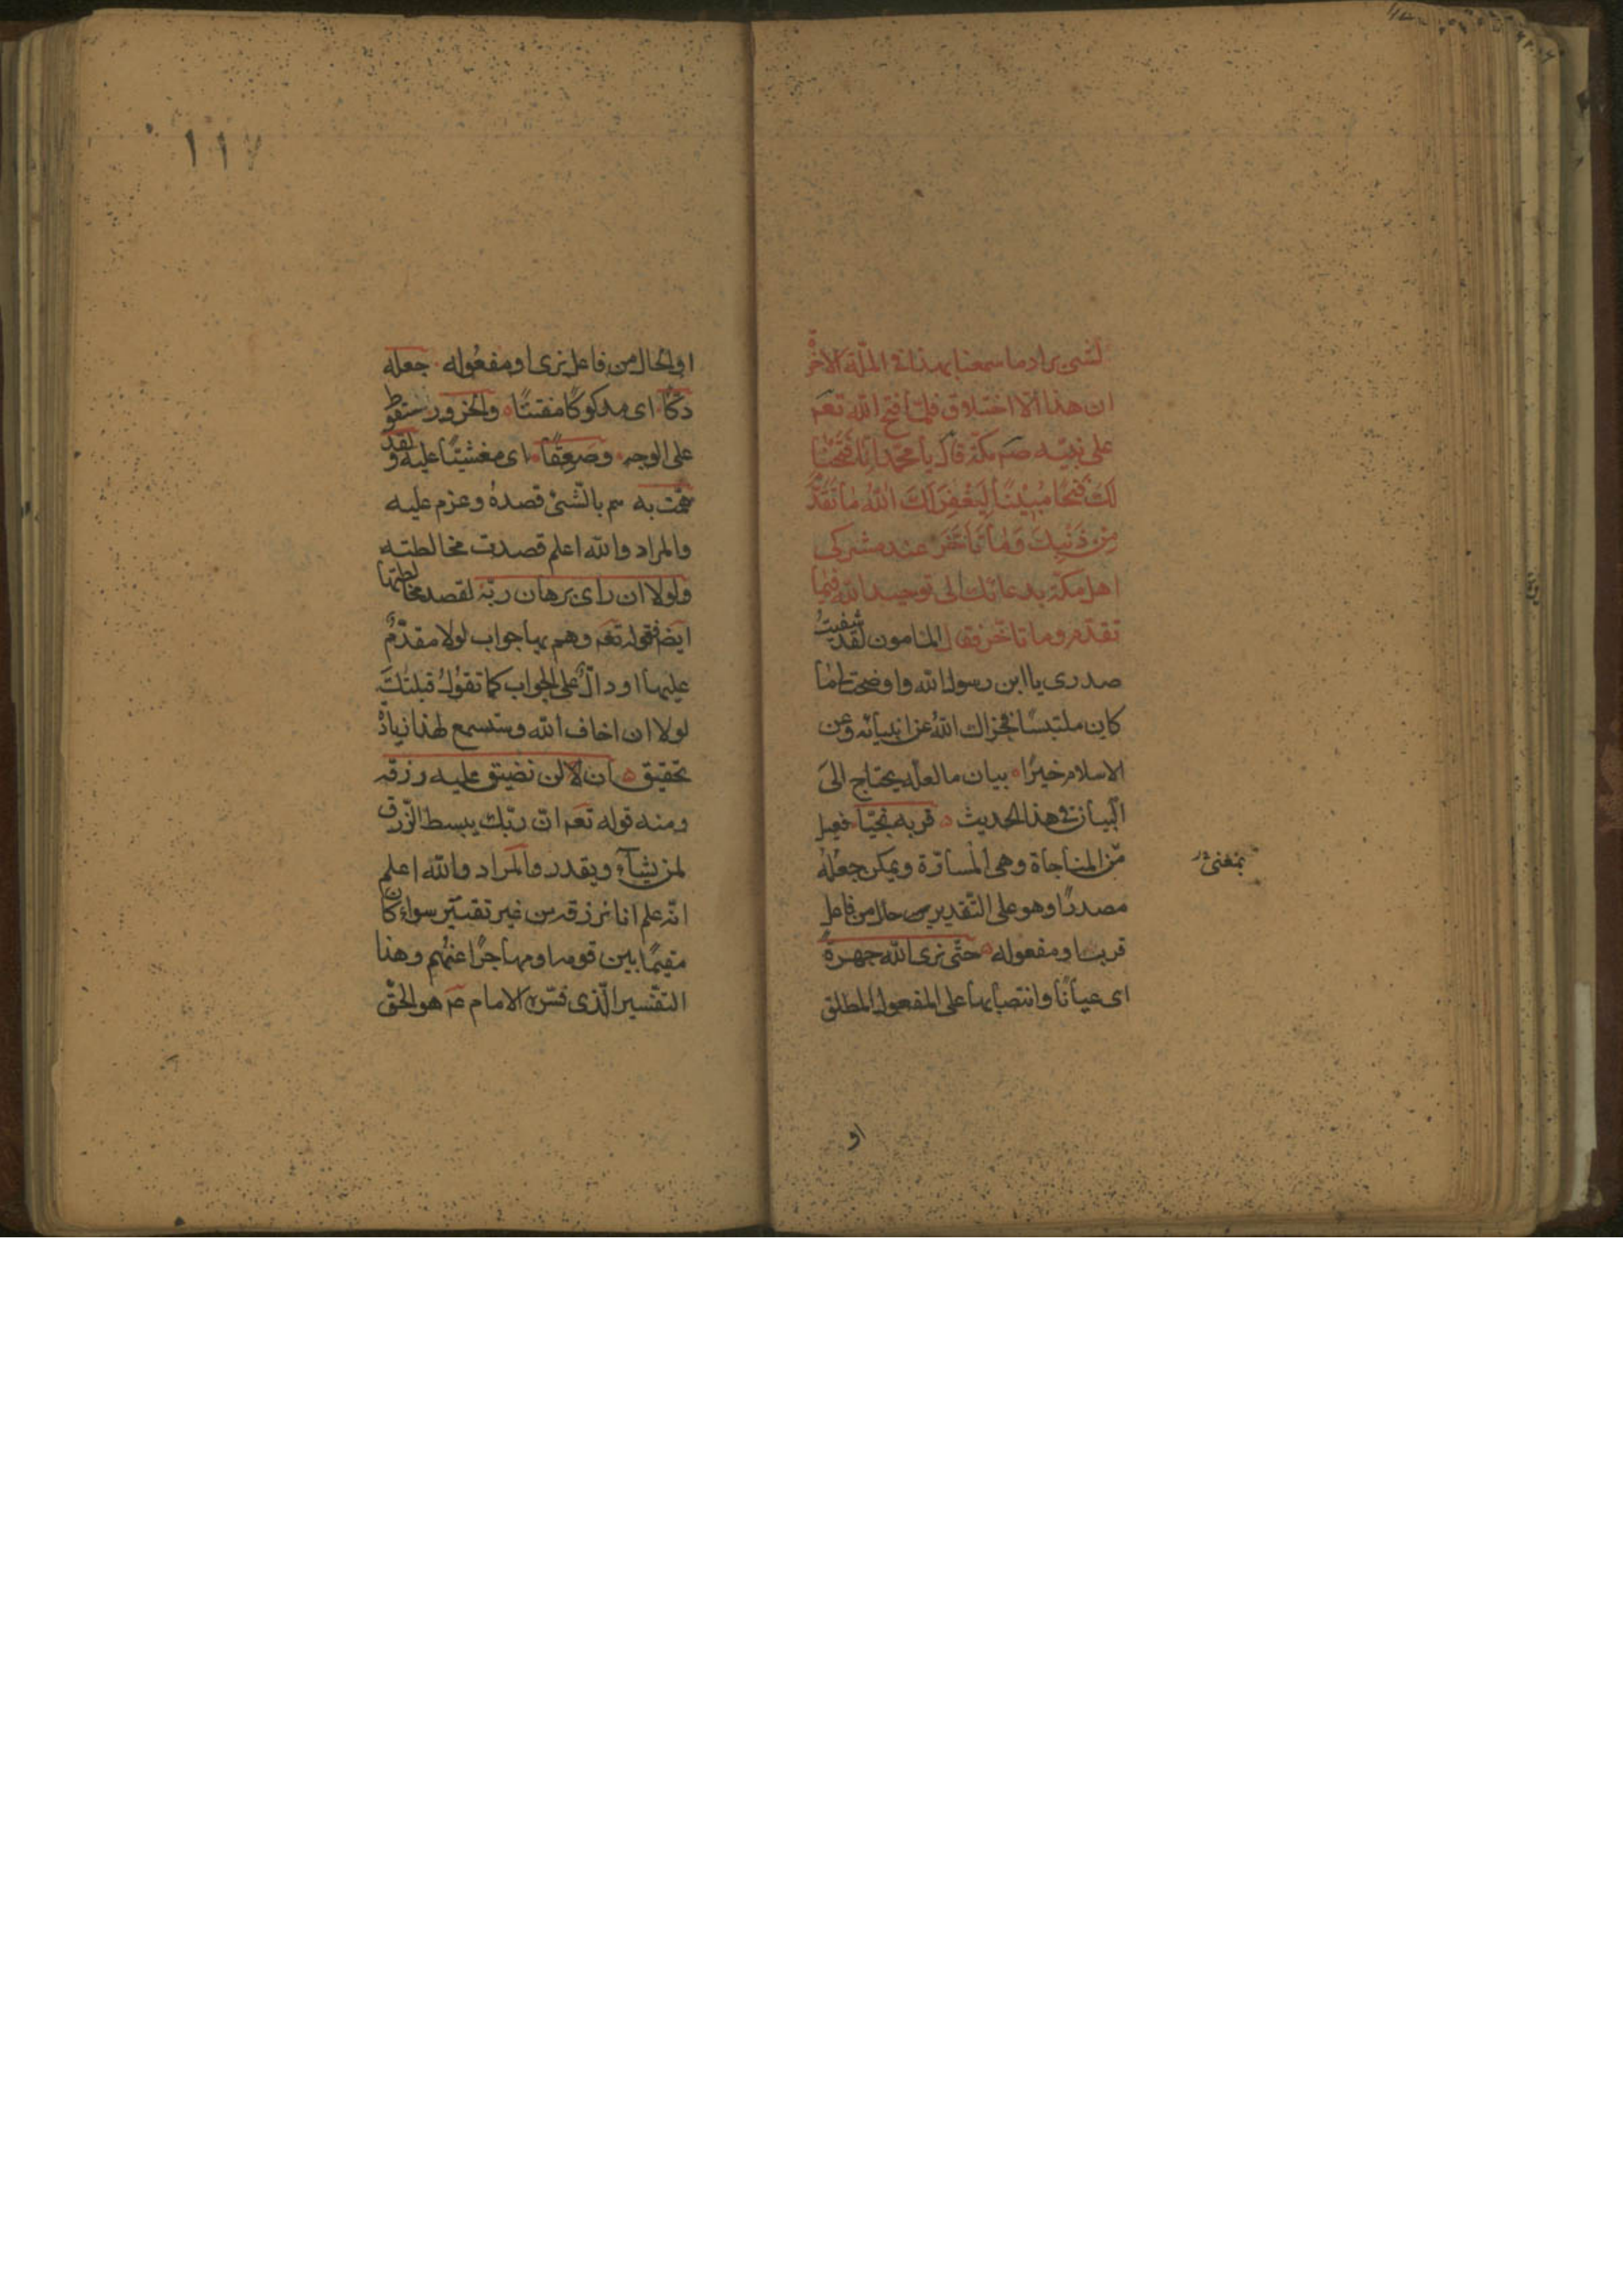 لشئ يراد ما سمعنا بهذا فى الملّة الاخرة
ان هذا الا اختلاق فلمّا فتح الله تعم
على نبيّه صم مكّة قال يا محمّد انّا فتحنا
لك فتحًا مبينًا ليغفر لك الله ما تقدّم
من ذنبك وما تأخّر عند مشركى
اهل مكّة بدعائك الى توحيد الله فيما
تقدّم وما تاخّر فقال المأمون لقد شفيت
صدرى يا ابن رسول الله واوضحت لى ما
كان ملتبسًا فجزاك الله عن انبيائه وعن
الاسلام خيرًا بيان ما لعلّه يحتاج الى
البيان فى هذا الحديث قربه نجيّا فعيل
من المناجاة وهى المسارّة ويمكن جعله
بمعنى
مصدرًا وهو على التقديرين حال من فاعل
قربنا ومفعوله حتّى نرى الله جهرة
اى عيانًا وانتصابها على المفعول المطلق
او
١١٧
او الحال من فاعل نرى او مفعوله جعله
دكّا اى مدكوكًا مفتتًا والخرور سقوط
على الوجه وصعقًا اى مغشيّا عليه ولقد
همّت به هم بالشئ قصده وعزم عليه
والمراد والله اعلم قصدت مخالطته
ولولا ان راى برهان ربّه لقصد مخالطتها
ايضا فقوله تعم وهم بها جواب لولا مقدّم
عليها او دالّ على الجواب كما تقول قبلتك
لولا ان اخاف الله وستسمع لهذا زيادة
تحقيق ان لا لن نضيق عليه رزقه
ومنه قوله تعم انّ ربّك يبسط الرّزق
لمن يشاء ويقدر والمراد والله اعلم
انّه علم انا نرزقه من غير تقتير سواء كان
مقيمًا بين قومه او مهاجرًا عنهم وهذا
التفسير الّذى فسّره الامام عم هو الحقّ